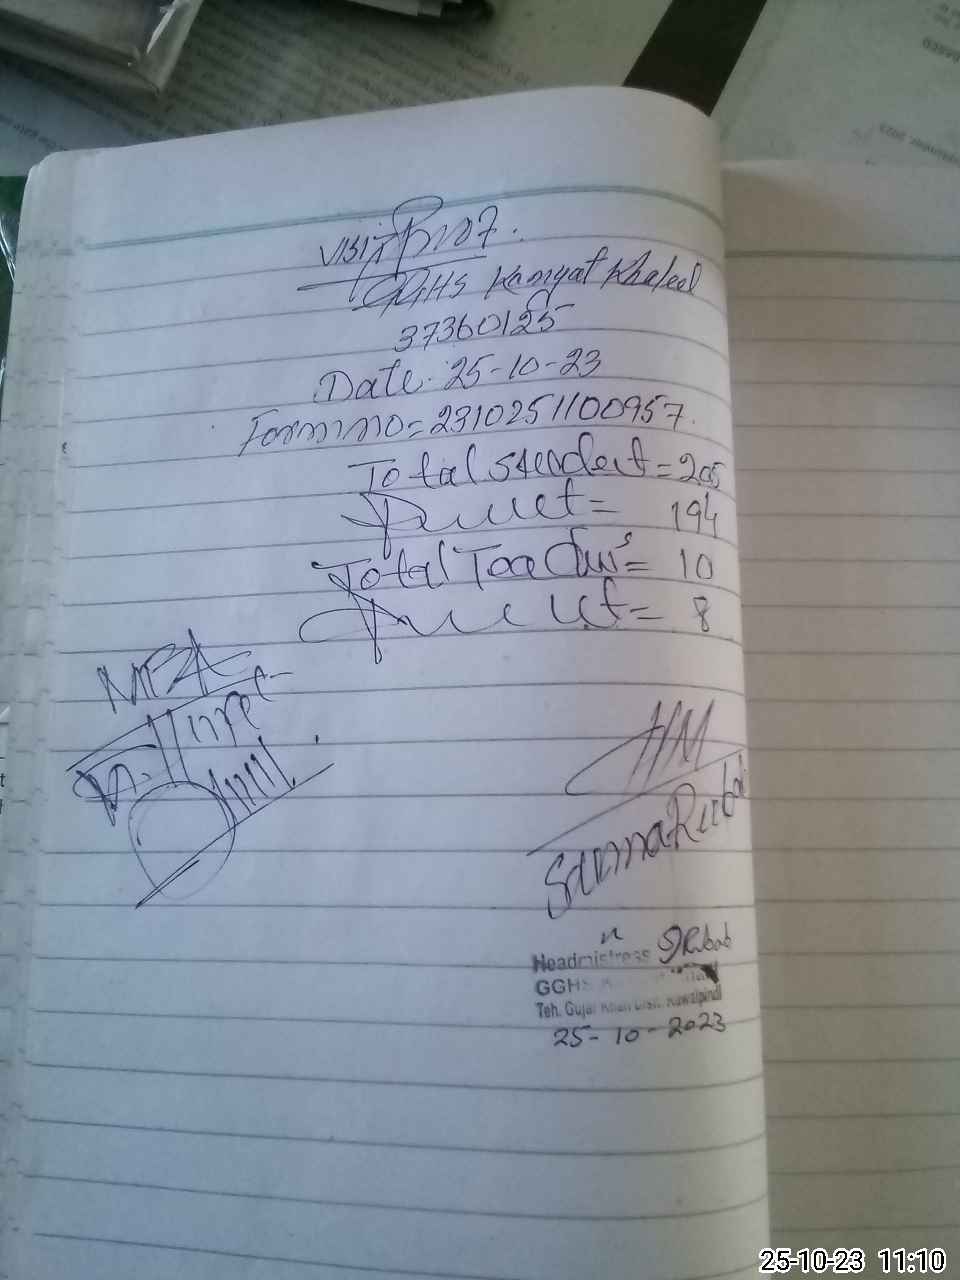 Visit Proof.
GGHS Kanyat Khaleel
37360125
Date. 25-10-23
Form no = 2310251100957.
Total student = 205
Present = 194
Total Teachers = 10
Present = 8
MEA
HM
Saima Rubab
Headmistress SRubab
GGHS
Teh. Gujar Khan Distt. Rawalpindi
25-10-2023
25-10-23 11:10